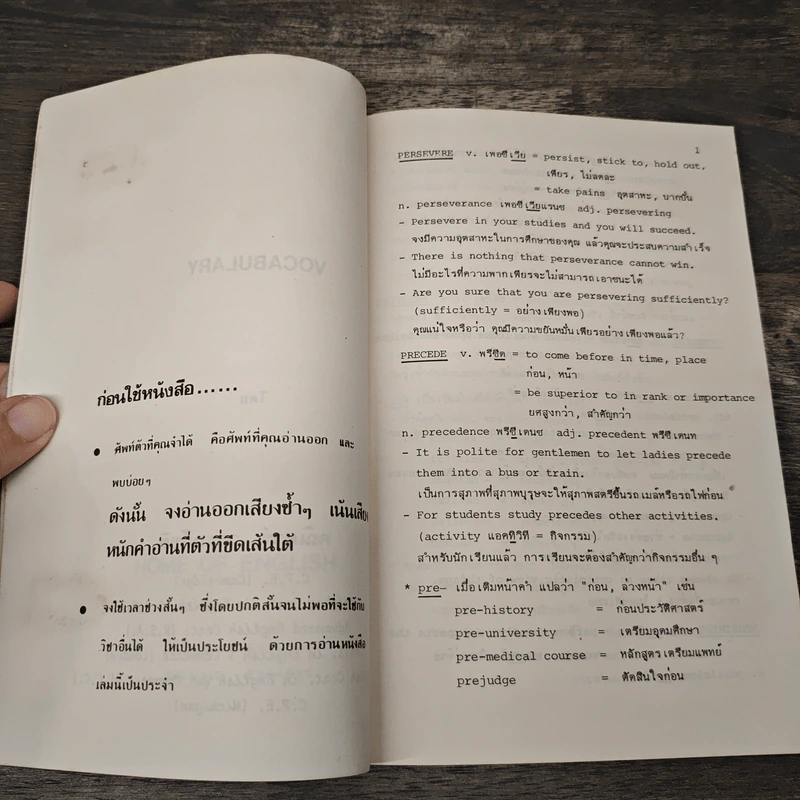 ก่อนใช้หนังสือ......
● ศัพท์ตัวที่คุณจำได้ คือศัพท์ที่คุณอ่านออก และ
พบบ่อยๆ
ดังนั้น จงอ่านออกเสียงซ้ำๆ เน้นเสียง
หนักคำอ่านที่ตัวที่ขีดเส้นใต้
● จงใช้เวลาช่วงสั้นๆ ซึ่งโดยปกติสั้นจนไม่พอที่จะใช้กับ
วิชาอื่นได้ ให้เป็นประโยชน์ ด้วยการอ่านหนังสือ
เล่มนี้เป็นประจำ
1
PERSEVERE v. เพอซีเวีย = persist, stick to, hold out,
เพียร, ไม่ลดละ
= take pains อุตสาหะ, บากบั่น
n. perseverance เพอซีเวียแรนซ adj. persevering
- Persevere in your studies and you will succeed.
จงมีความอุตสาหะในการศึกษาของคุณ แล้วคุณจะประสบความสำเร็จ
- There is nothing that perseverance cannot win.
ไม่มีอะไรที่ความพากเพียรจะไม่สามารถเอาชนะได้
- Are you sure that you are persevering sufficiently?
(sufficiently = อย่างเพียงพอ)
คุณแน่ใจหรือว่า คุณมีความขยันหมั่นเพียรอย่างเพียงพอแล้ว?
PRECEDE v. พรีซีด = to come before in time, place
ก่อน, หน้า
= be superior to in rank or importance
ยศสูงกว่า, สำคัญกว่า
n. precedence พรีซีเดนซ adj. precedent พรีซีเดนท
- It is polite for gentlemen to let ladies precede
them into a bus or train.
เป็นการสุภาพที่สุภาพบุรุษจะให้สุภาพสตรีขึ้นรถเมล์หรือรถไฟก่อน
- For students study precedes other activities.
(activity แอคทิวิที = กิจกรรม)
สำหรับนักเรียนแล้ว การเรียนจะต้องสำคัญกว่ากิจกรรมอื่น ๆ
* pre- เมื่อเติมหน้าคำ แปลว่า "ก่อน, ล่วงหน้า" เช่น
pre-history = ก่อนประวัติศาสตร์
pre-university = เตรียมอุดมศึกษา
pre-medical course = หลักสูตรเตรียมแพทย์
prejudge = ตัดสินใจก่อน